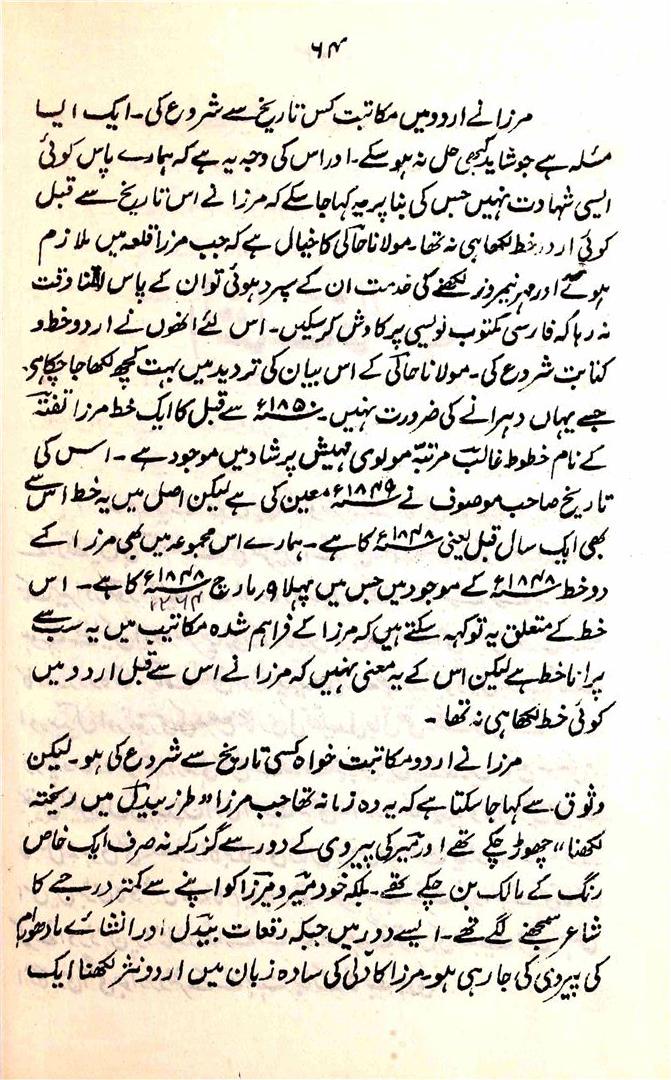 ۶۴
مرزا نے اردو میں مکاتبت کس تاریخ سے شروع کی۔ ایک ایسا
مسئلہ ہے جو شاید کبھی حل نہ ہو سکے۔ اور اس کی وجہ یہ ہے کہ ہمارے پاس کوئی
ایسی شہادت نہیں جس کی بنا پر یہ کہا جا سکے کہ مرزا نے اس تاریخ سے قبل
کوئی اردو خط لکھا ہی نہ تھا۔ مولانا حالی کا خیال ہے کہ جب مرزا قلعہ میں ملازم
ہو گئے اور مہر نیمروز لکھنے کی خدمت ان کے سپرد ہوئی تو ان کے پاس اتنا وقت
نہ رہا کہ فارسی مکتوب نویسی پر کاوش کر سکیں۔ اس لئے انھوں نے اردو خط و
کتابت شروع کی۔ مولانا حالی کے اس بیان کی تردید میں بہت کچھ لکھا جا چکا ہے
جسے یہاں دہرانے کی ضرورت نہیں۔ ۱۸۵۰ء سے قبل کا ایک خط مرزا تفتہ
کے نام خطوط غالب مرتبہ مولوی مہیش پرشاد میں موجود ہے۔ اس کی
تاریخ صاحب موصوف نے ۱۸۴۹ء معین کی ہے لیکن اصل میں یہ خط اس سے
بھی ایک سال قبل یعنی ۱۸۴۸ء کا ہے۔ ہمارے اس مجموعہ میں بھی مرزا کے
دو خط ۱۸۴۸ء کے موجود ہیں جس میں پہلا ۹ مارچ ۱۸۴۸ء کا ہے۔ اس
۱۲۶۴
خط کے متعلق یہ تو کہہ سکتے ہیں کہ مرزا کے فراہم شدہ مکاتیب میں یہ سب سے
پرانا خط ہے لیکن اس کے یہ معنی نہیں کہ مرزا نے اس سے قبل اردو میں
کوئی خط لکھا ہی نہ تھا۔
مرزا نے اردو مکاتبت خواہ کسی تاریخ سے شروع کی ہو۔ لیکن
وثوق سے کہا جا سکتا ہے کہ یہ وہ زمانہ تھا جب مرزا "طرز بیدل میں ریختہ
لکھنا" چھوڑ چکے تھے اور میر کی پیروی کے دور سے گزر کر نہ صرف ایک خاص
رنگ کے مالک بن چکے تھے۔ بلکہ خود میر و میرزا کو اپنے سے کمتر درجے کا
شاعر سمجھنے لگے تھے۔ ایسے دور میں جبکہ رقعات بیدل اور انشائے مادھو رام
کی پیروی کی جا رہی ہو۔ مرزا کا دلی کی سادہ زبان میں اردو نثر لکھنا ایک